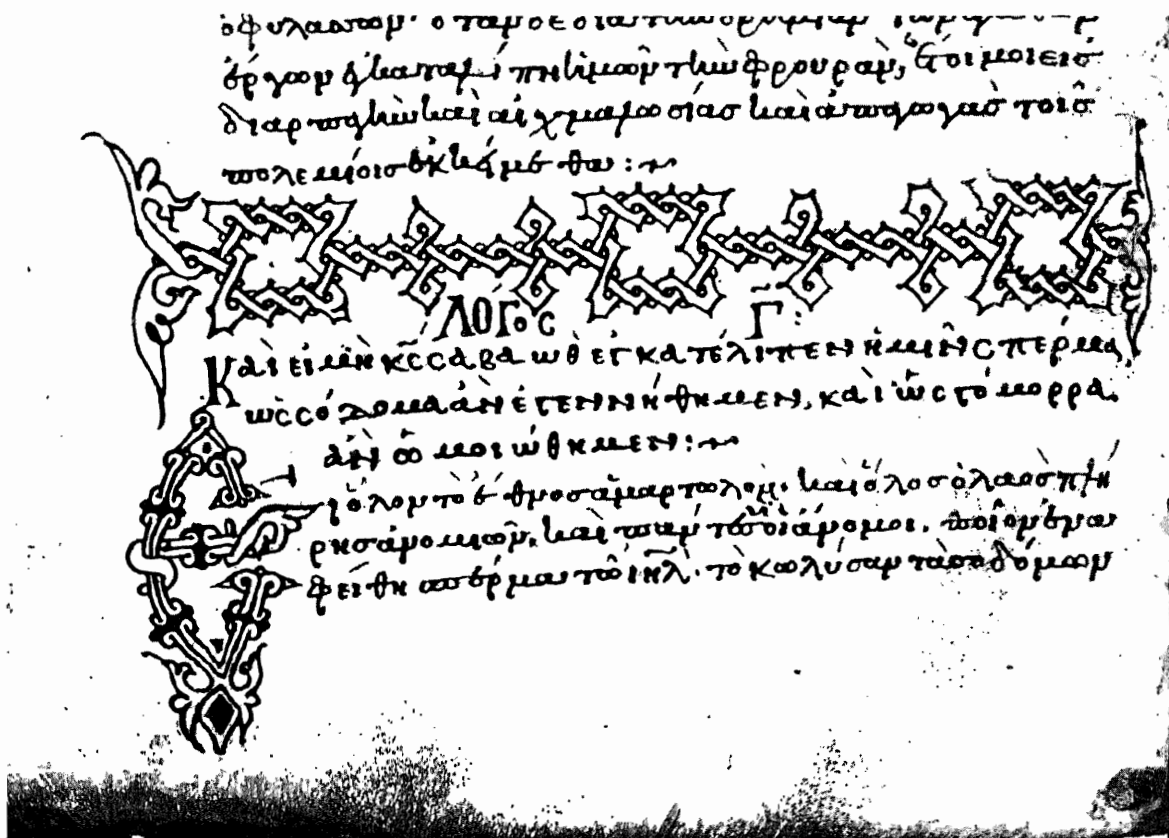 ὁ φυλάσσων· ὅταν δὲ διὰ
ἔργων ἐγκαταλίπῃ ἡμῶν τὴν φρουρὰν, ἕτοιμοι εἰς
διαρπαγὴν καὶ αἰχμαλωσίας καὶ ἀπαγωγὰς τοῖς
πολεμίοις ἐκκείμεθα :~
ΛΟΓΟΣ Γ̅ :
Καὶ εἰ μὴ κ̅ς̅ σαβαὼθ ἐγκατέλιπεν ἡμῖν σπέρμα,
ὡς σόδομα ἂν ἐγενήθημεν, καὶ ὡς γόμορρα
ἂν ὡμοιώθημεν :~
Εἰ ὅλον τὸ ἔθνος ἁμαρτωλὸν· καὶ ὅλος ὁ λαὸς πλή
ρης ἀνομιῶν· καὶ πάντες οἱ ἄνομοι· ποῖον ἐνα
φείθη σπέρμα τῶ ι̅η̅λ̅· τὸ κωλύσαν τὰ σοδόμων